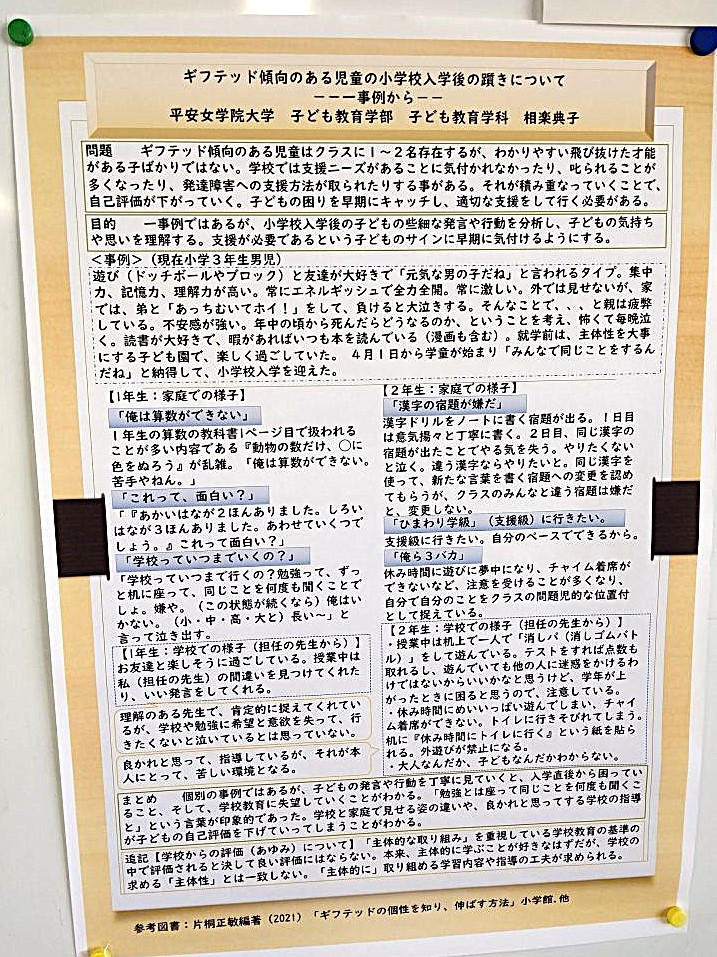 ギフテッド傾向のある児童の小学校入学後の躓きについて
ーー一事例からーー
平安女学院大学　子ども教育学部　子ども教育学科　相楽典子
問題　　ギフテッド傾向のある児童はクラスに１～２名存在するが、わかりやすい飛び抜けた才能
がある子ばかりではない。学校では支援ニーズがあることに気付かれなかったり、叱られることが
多くなったり、発達障害への支援方法が取られたりする事がある。それが積み重なっていくことで、
自己評価が下がっていく。子どもの困りを早期にキャッチし、適切な支援をして行く必要がある。
目的　　一事例ではあるが、小学校入学後の子どもの些細な発言や行動を分析し、子どもの気持ち
や思いを理解する。支援が必要であるという子どものサインに早期に気付けるようにする。
＜事例＞（現在小学３年生男児）
遊び（ドッチボールやブロック）と友達が大好きで「元気な男の子だね」と言われるタイプ。集中
力、記憶力、理解力が高い。常にエネルギッシュで全力全開。常に激しい。外では見せないが、家
では、弟と「あっちむいてホイ！」をして、負けると大泣きする。そんなことで、、、と親は疲弊
している。不安感が強い。年中の頃から死んだらどうなるのか、ということを考え、怖くて毎晩泣
く。読書が大好きで、暇があればいつも本を読んでいる（漫画も含む）。就学前は、主体性を大事
にする子ども園で、楽しく過ごしていた。４月１日から学童が始まり「みんなで同じことをするん
だね」と納得して、小学校入学を迎えた。
【1年生：家庭での様子】
「俺は算数ができない」
１年生の算数の教科書1ページ目で扱われる
ことが多い内容である『動物の数だけ、〇に
色をぬろう』が乱雑。「俺は算数ができない。
苦手やねん。」
「これって、面白い？」
「『あかいはなが２ほんありました。しろい
はなが３ほんありました。あわせていくつで
しょう。』これって面白い？」
「学校っていつまでいくの？」
「学校っていつまで行くの？勉強って、ずっ
と机に座って、同じことを何度も聞くことで
しょ。嫌や。（この状態が続くなら）俺はい
かない。（小・中・高・大と）長い～」と
言って泣き出す。
【1年生：学校での様子（担任の先生から）】
お友達と楽しそうに過ごしている。授業中は
私（担任の先生）の間違いを見つけてくれた
り、いい発言をしてくれる。
理解のある先生で、肯定的に捉えてくれてい
るが、学校や勉強に希望と意欲を失って、行
きたくないと泣いているとは思っていない。
良かれと思って、指導しているが、それが本
人にとって、苦しい環境となる。
【２年生：家庭での様子】
「漢字の宿題が嫌だ」
漢字ドリルをノートに書く宿題が出る。１日目
は意気揚々と丁寧に書く。２日目、同じ漢字の
宿題が出たことでやる気を失う。やりたくない
と泣く。違う漢字ならやりたいと。同じ漢字を
使って、新たな言葉を書く宿題への変更を認め
てもらうが、クラスのみんなと違う宿題は嫌だ
と、変更しない。
「ひまわり学級」（支援級）に行きたい。
支援級に行きたい。自分のペースでできるから。
「俺ら３バカ」
休み時間に遊びに夢中になり、チャイム着席が
できないなど、注意を受けることが多くなり、
自分で自分のことをクラスの問題児的な位置付
として捉えている。
【２年生：学校での様子（担任の先生から）】
・授業中は机上で一人で「消しバ（消しゴムバト
ル）」をして遊んでいる。テストをすれば点数も
取れるし、遊んでいても他の人に迷惑をかけるわ
けではないからいいかなと思うけど、学年が上
がったときに困ると思うので、注意している。
・休み時間にめいいっぱい遊んでしまい、チャイ
ム着席ができない。トイレに行きそびれてしまう。
机に『休み時間にトイレに行く』という紙を貼ら
れる。外遊びが禁止になる。
・大人なんだか、子どもなんだかわからない。
まとめ　　個別の事例ではあるが、子どもの発言や行動を丁寧に見ていくと、入学直後から困ってい
ること、そして、学校教育に失望していくことがわかる。「勉強とは座って同じことを何度も聞くこ
と」という言葉が印象的であった。学校と家庭で見せる姿の違いや、良かれと思ってする学校の指導
が子どもの自己評価を下げていってしまうことがわかる。
追記【学校からの評価（あゆみ）について】「主体的な取り組み」を重視している学校教育の基準の
中で評価されると決して良い評価にはならない。本来、主体的に学ぶことが好きなはずだが、学校の
求める「主体性」とは一致しない。「主体的に」取り組める学習内容や指導の工夫が求められる。
参考図書：片桐正敏編著（2021）「ギフテッドの個性を知り、伸ばす方法」小学館.他